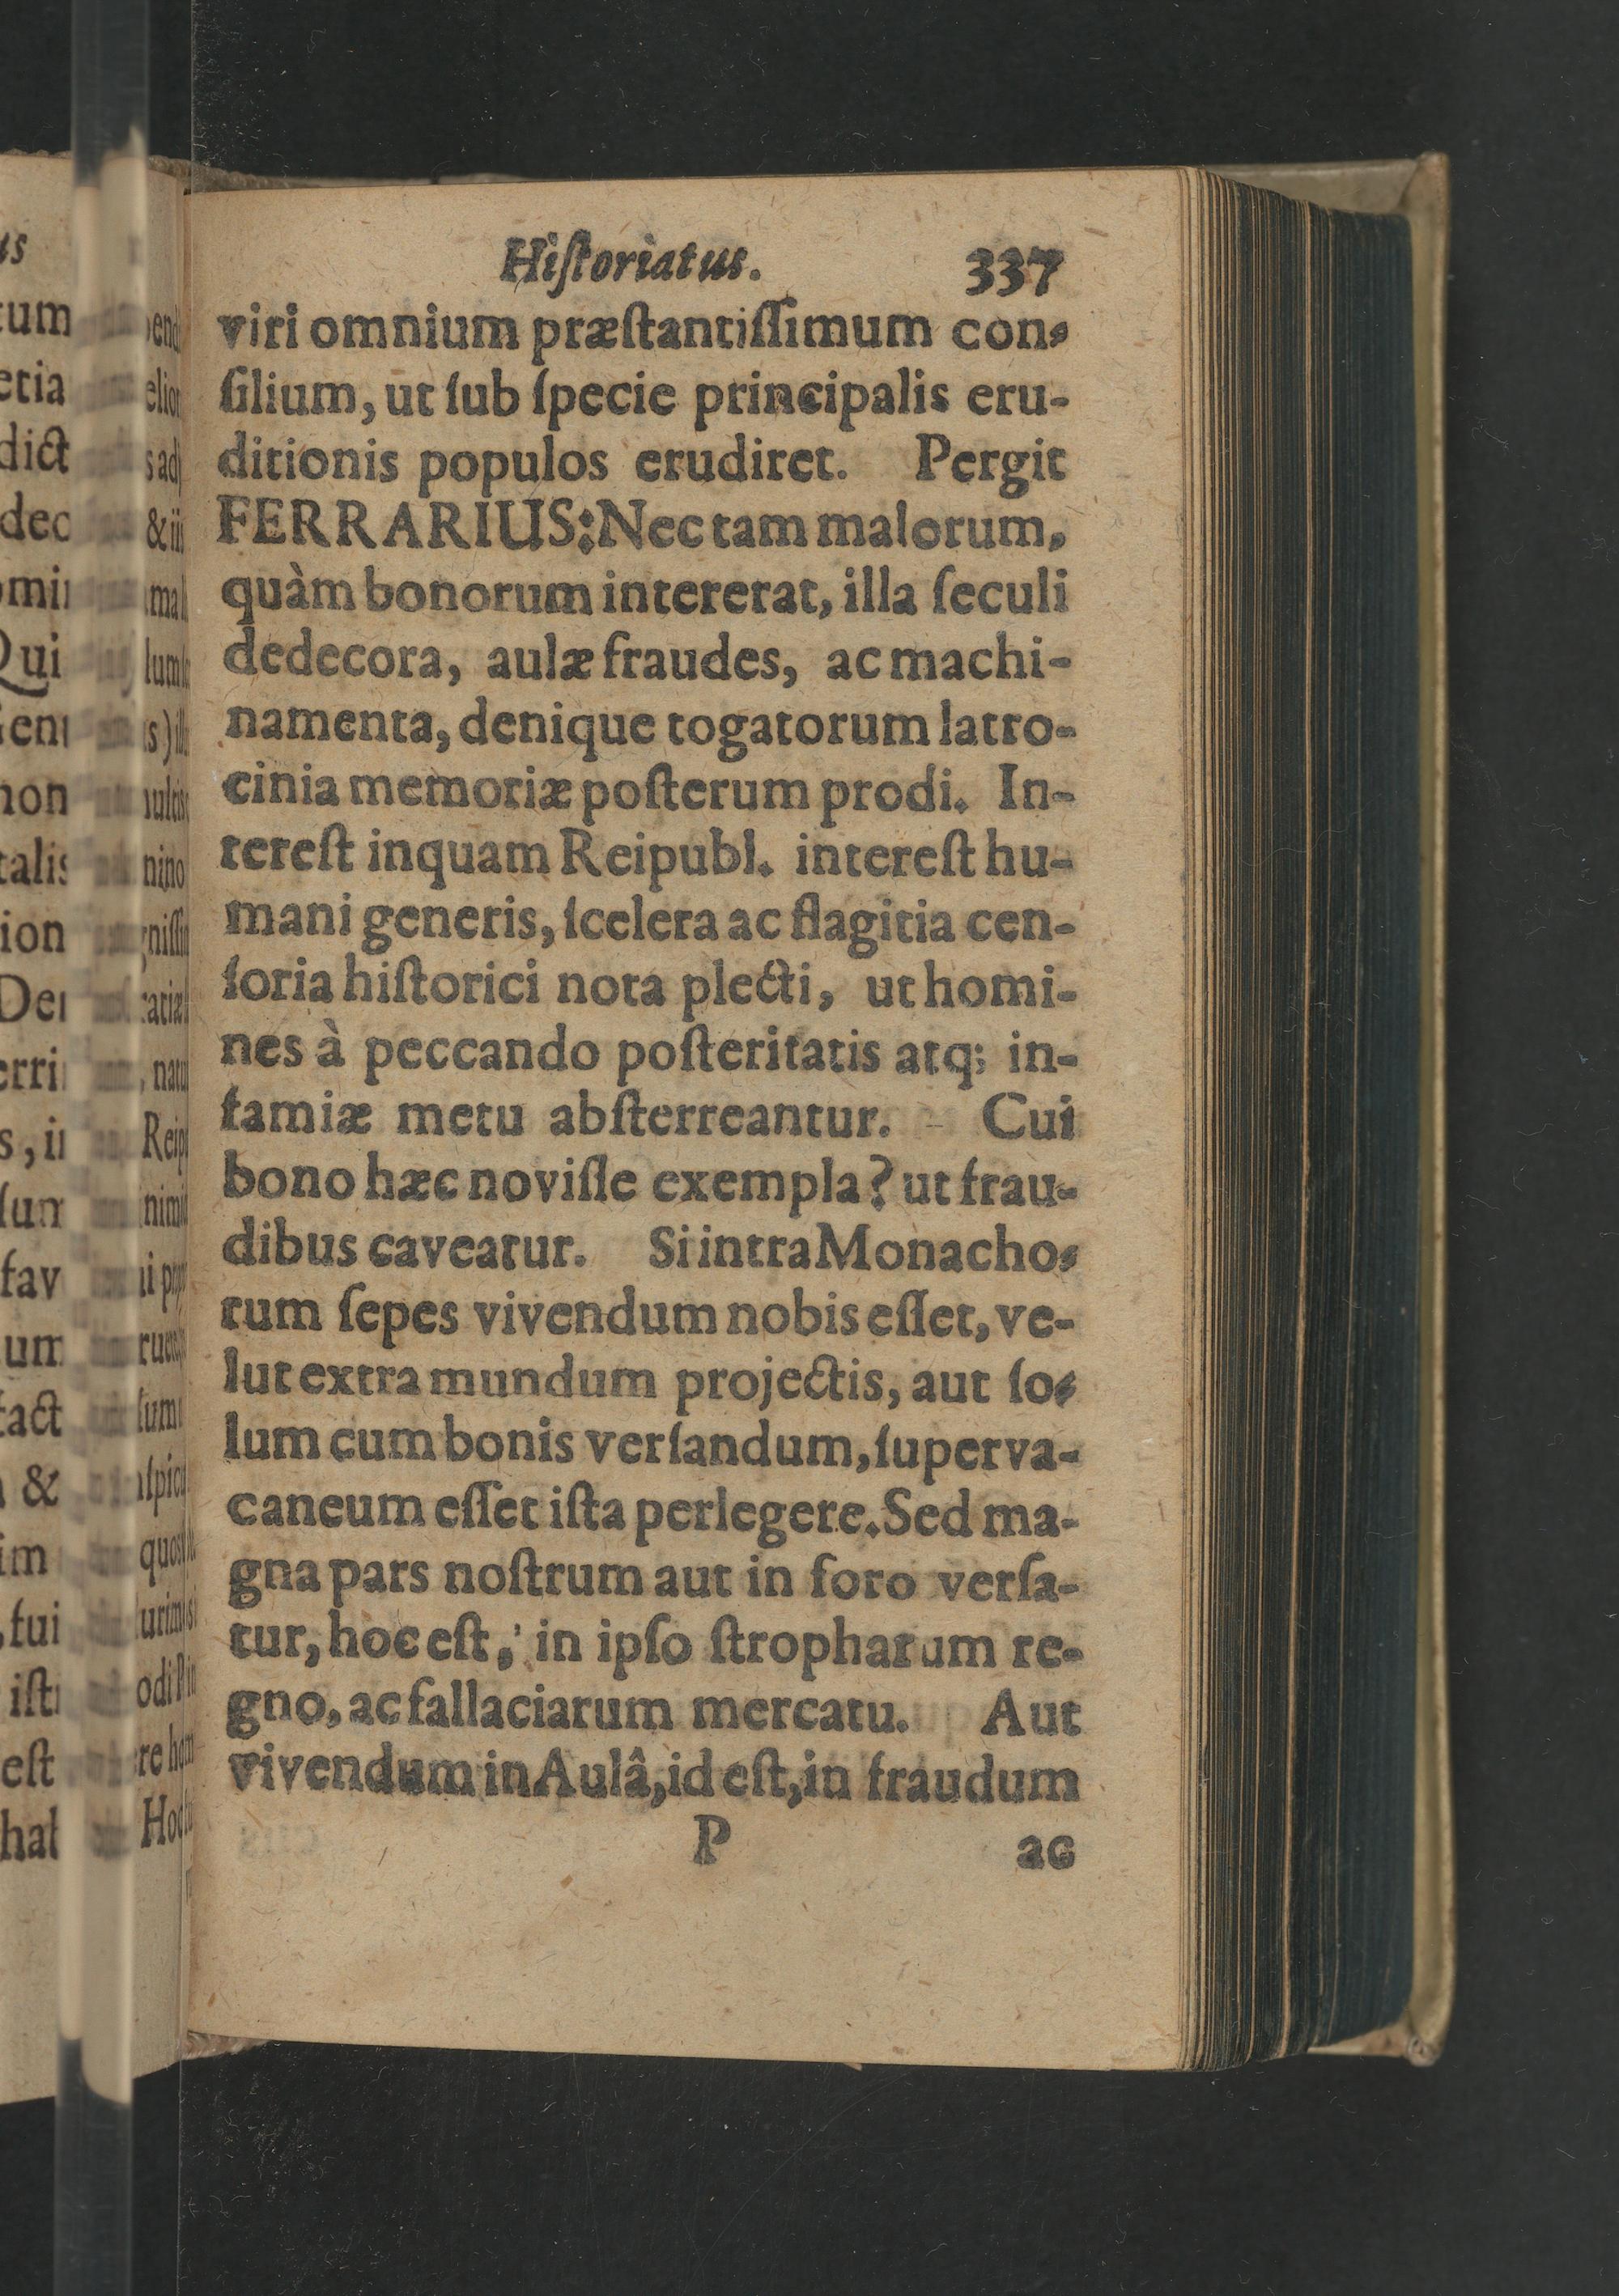 Hiſtoriatus. 337
viri omnium præſtantiſſimum con-
ſilium, ut ſub ſpecie principalis eru-
ditionis populos erudiret. Pergit
FERRARIUS: Nec tam malorum,
quàm bonorum intererat, illa ſeculi
dedecora, aulæ fraudes, ac machi-
namenta, denique togatorum latro-
cinia memoriæ poſterum prodi. In-
tereſt inquam Reipubl. intereſt hu-
mani generis, ſcelera ac flagitia cen-
ſoria hiſtorici nota plecti, ut homi-
nes à peccando poſteritatis atq; in-
famiæ metu abſterreantur. Cui
bono hæc noviſſe exempla? ut frau-
dibus caveatur. Si intra Monacho-
rum ſepes vivendum nobis eſſet, ve-
lut extra mundum projectis, aut ſo-
lum cum bonis verſandum, ſuperva-
caneum eſſet iſta perlegere. Sed ma-
gna pars noſtrum aut in foro verſa-
tur, hoc eſt, in ipſo ſtropharum re-
gno, ac fallaciarum mercatu. Aut
vivendum in Aulâ, id eſt, in fraudum
P ac